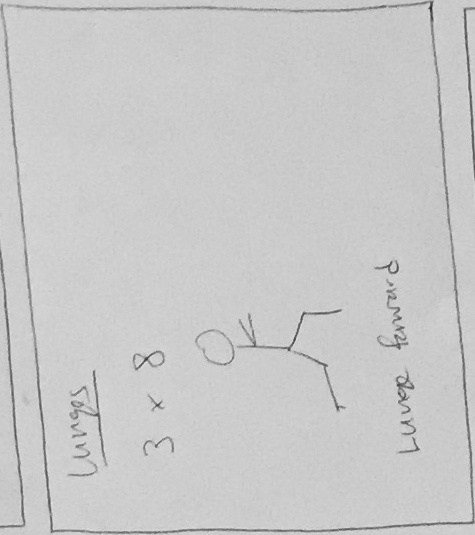 Lunges
3 x 8
Lunge forward